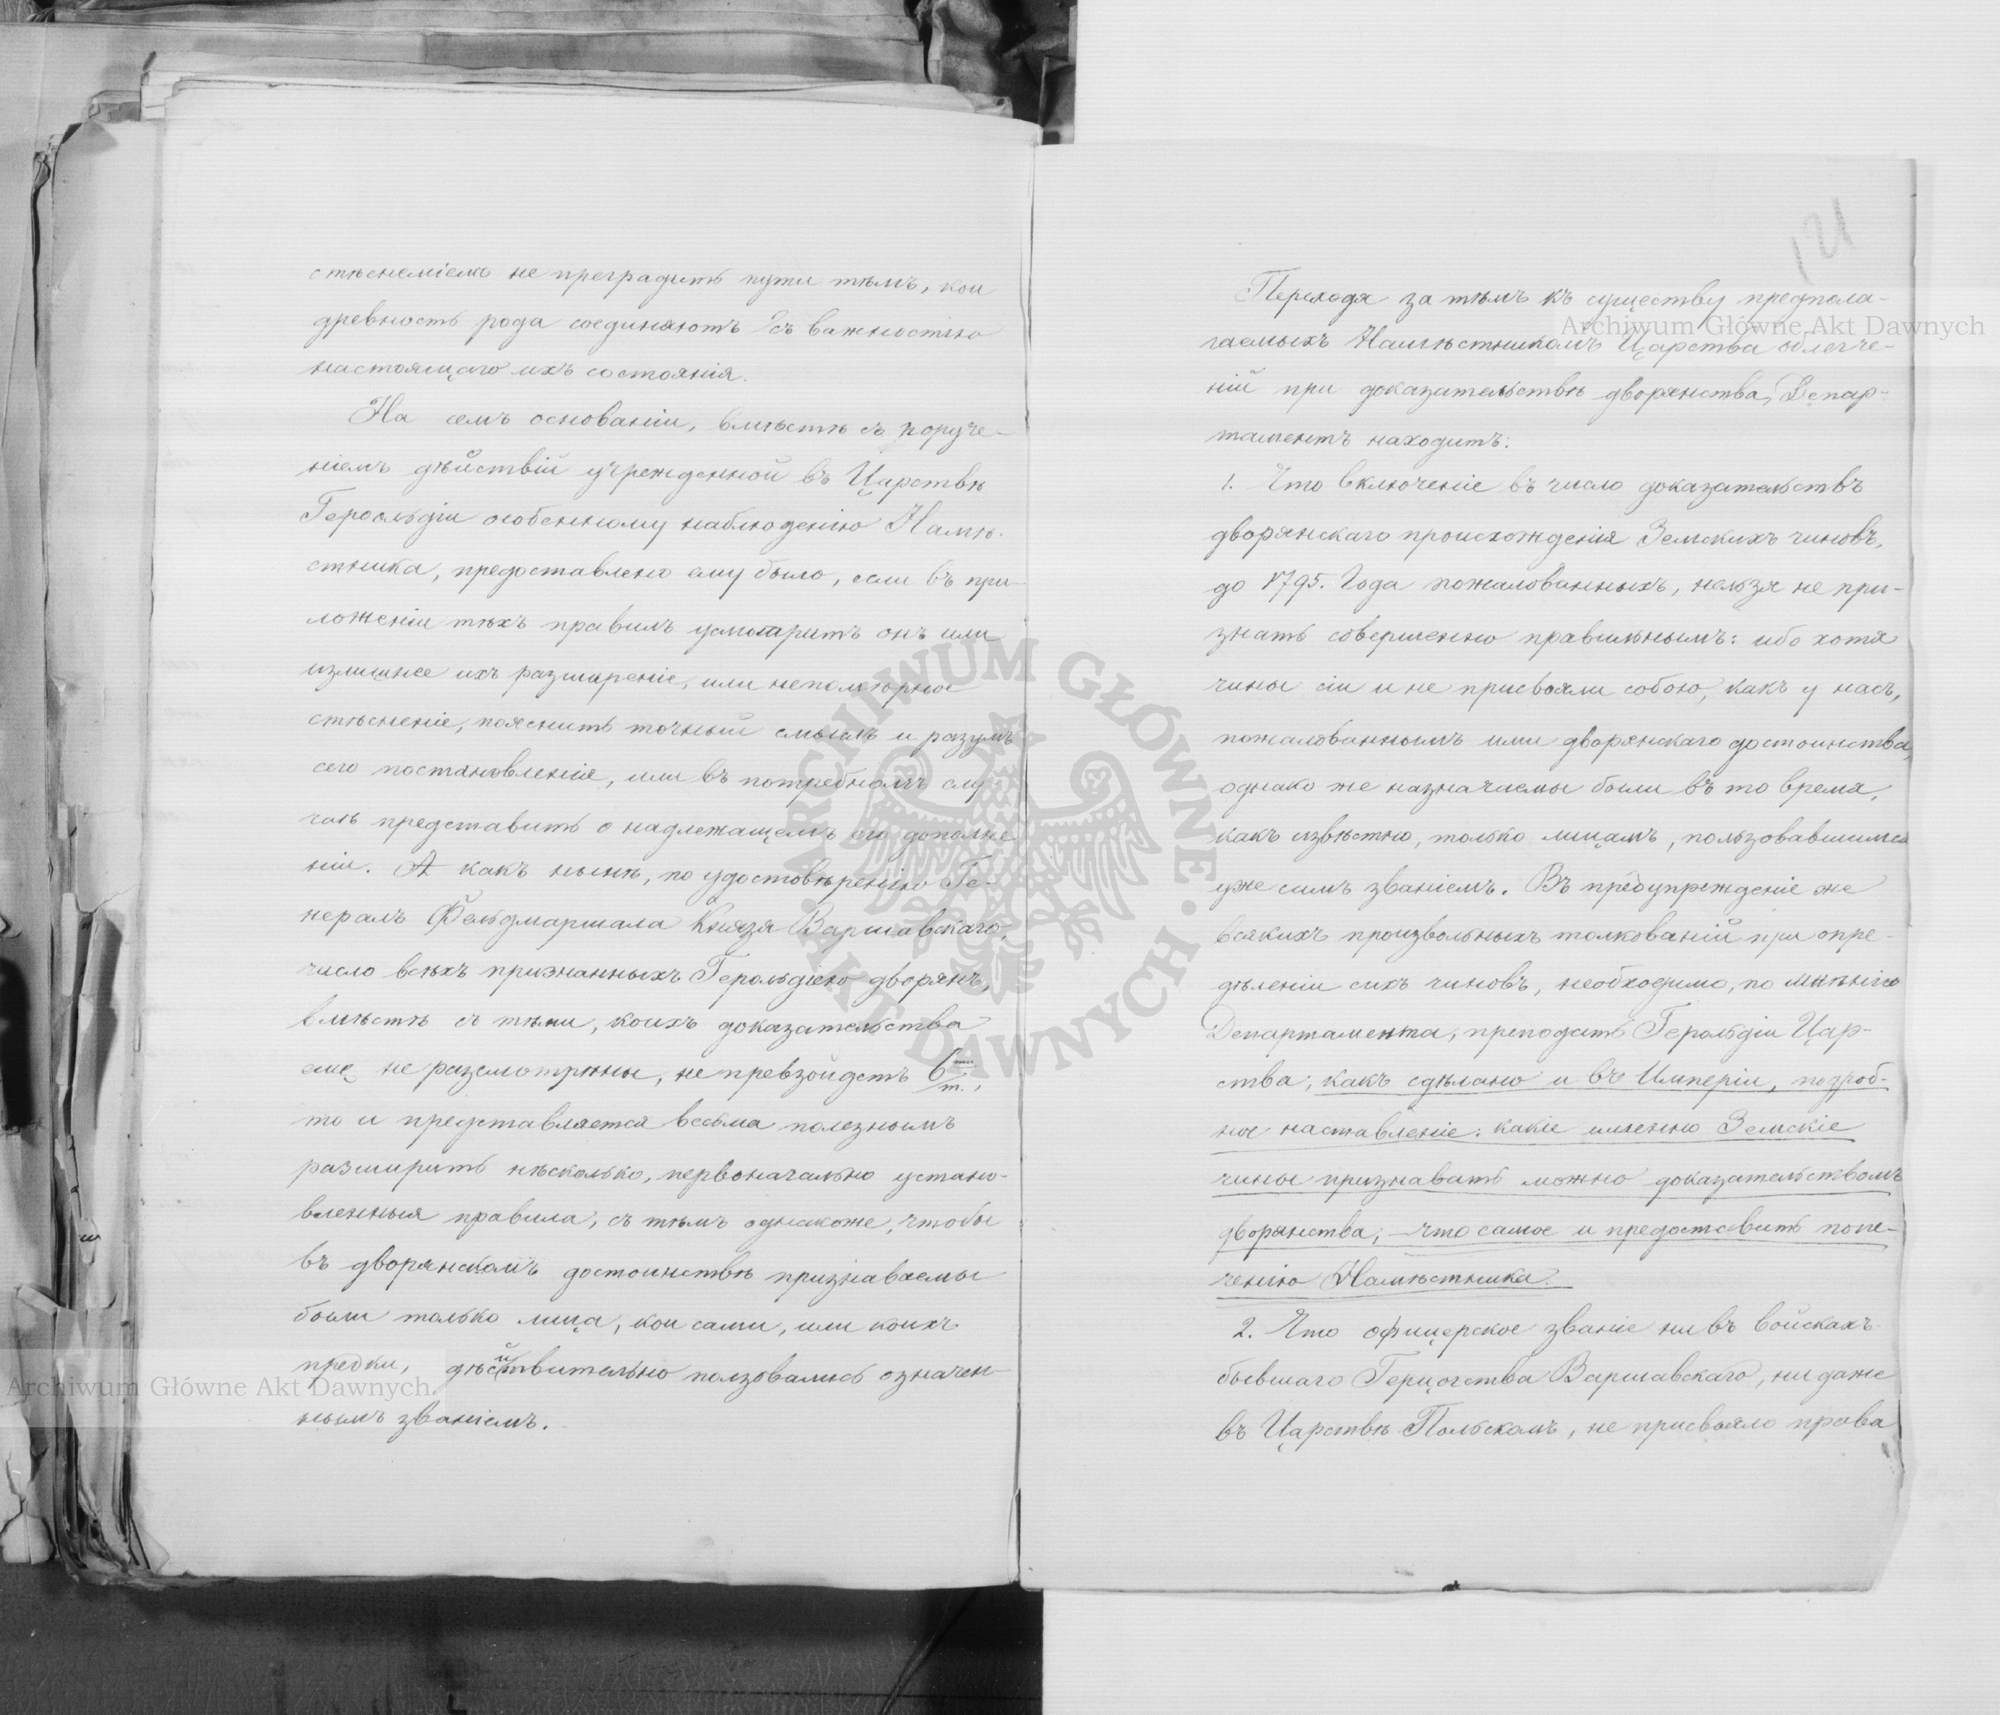 стѣсненіемъ не преградить пути тѣмъ, кои
древность рода соединяютъ съ важностію
настоящаго ихъ состоянія.
На семъ основаніи, вмѣстѣ съ поруче-
ніемъ дѣйствій учрежденной въ Царствѣ
Герольдіи особенному наблюденію Намѣ-
стника, предоставлено ему было, если въ при-
ложеніи тѣхъ правилъ усмотритъ онъ или
излишнее ихъ разширеніе, или непомѣрное
стѣсненіе, пояснить точный смыслъ и разумъ
сего постановленіе, или въ потребномъ слу
чаѣ представить о надлежащемъ его дополне
ніи. А какъ нынѣ, по удостовѣренію Ге-
нералъ Фельдмаршала Князя Варшавскаго,
число всѣхъ признанныхъ Герольдіею дворянъ,
вмѣстѣ съ тѣми, коихъ доказательства
еще не разсмотрѣны, не превзойдетъ 6ти т.,
то и представляется весьма полезнымъ
разширить нѣсколько, первоначально устано-
вленныя правила, съ тѣмъ однакоже, чтобы
въ дворянскомъ достоинствѣ признаваемы
были только лица, кои сами, или коихъ
предки, дѣйствительно ползовались означен-
нымъ званіемъ.
121
Переходя за тѣмъ къ существу предпола-
гаемыхъ Намѣстникомъ Царства облегче-
ній при доказательствѣ дворянства, Депар-
таментъ находитъ:
1. Что включеніе въ число доказательствъ
дворянскаго происхожденія Земскихъ чиновъ,
до 1795. Года пожалованныхъ, нельзя не при-
знать совершенно правильнымъ: ибо хотя
чины сіи и не присвояли собою, какъ у насъ,
пожалованнымъ ими дворянскаго достоинства,
однако же назначаемы были въ то время,
какъ извѣстно, только лицамъ, пользовавшимся
уже симъ званіемъ. Въ предупрежденіе же
всякихъ произвольныхъ толкованій при опре-
дѣленіи сихъ чиновъ, необходимо, по мнѣнію
Департамента, преподать Герольдіи Цар-
ства, какъ сдѣлано и въ Имперіи, подроб-
ное наставленіе: какіе именно Земскіе
чины признавать можно доказательствомъ
дворянства, – что самое и предоставить попе-
ченію Намѣстника.
2. Что офицерское званіе ни въ войскахъ
бывшаго Герцогства Варшавскаго, ни даже
въ Царствѣ Польскомъ, не присвояло права
Archiwum Główne Akt Dawnych
Archiwum Główne Akt Dawnych
ARCHIWUM GŁÓWNE · AKT DAWNYCH ·